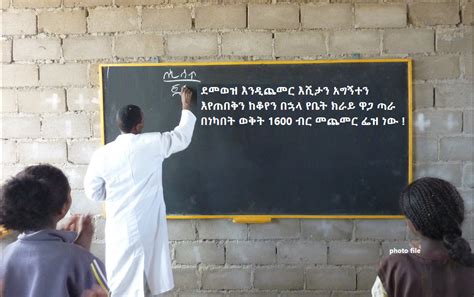 ደመወዝ እንዲጨመር እሺታን አግኝተን
እየጠበቅን ከቆየን በኋላ የቤት ክራይ ዋጋ ጣራ
በነካበት ወቅት 1600 ብር መጨመር ፌዝ ነው !
photo file